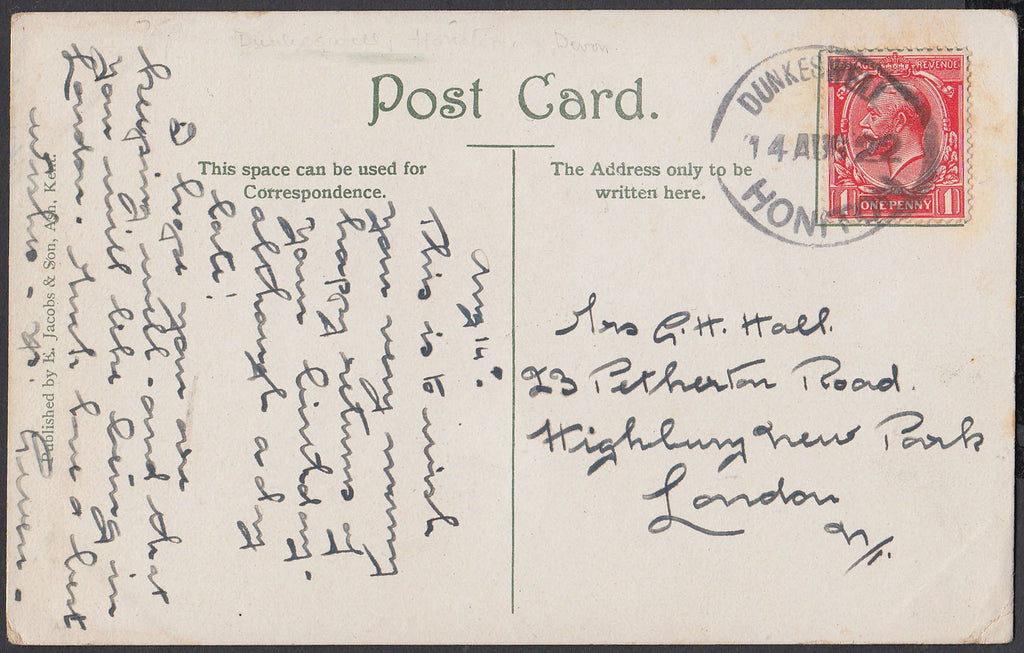 Dunkeswell, Honiton, Devon.
Post Card.
This space can be used for
Correspondence.
The Address only to be
written here.
POSTAGE REVENUE
ONE PENNY
1 1
DUNKESWELL
14 AUG 22
HONITON
Aug 14th.
This is to wish
you very many
happy returns of
your birthday.
although a day
late!
I hope you are
keeping well - and that
you will like being in
London. Much love & best
wishes -
Published by E. Jacobs & Son, Ash, Kent.
Mrs G.H. Hall.
23 Petherton Road.
Highbury New Park
London
N/1.